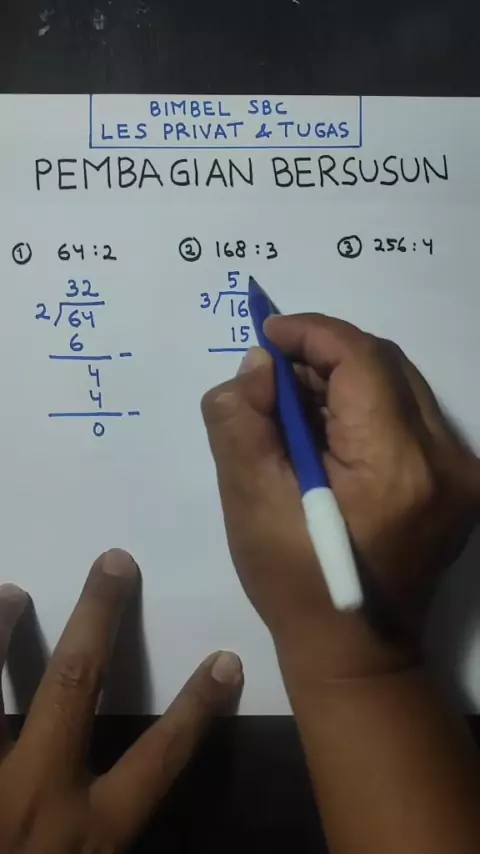 BIMBEL SBC
LES PRIVAT & TUGAS
PEMBAGIAN BERSUSUN
① 64 : 2
32
2 64
6
—
4
4
—
0
② 168 : 3
5
3 16
15
③ 256 : 4